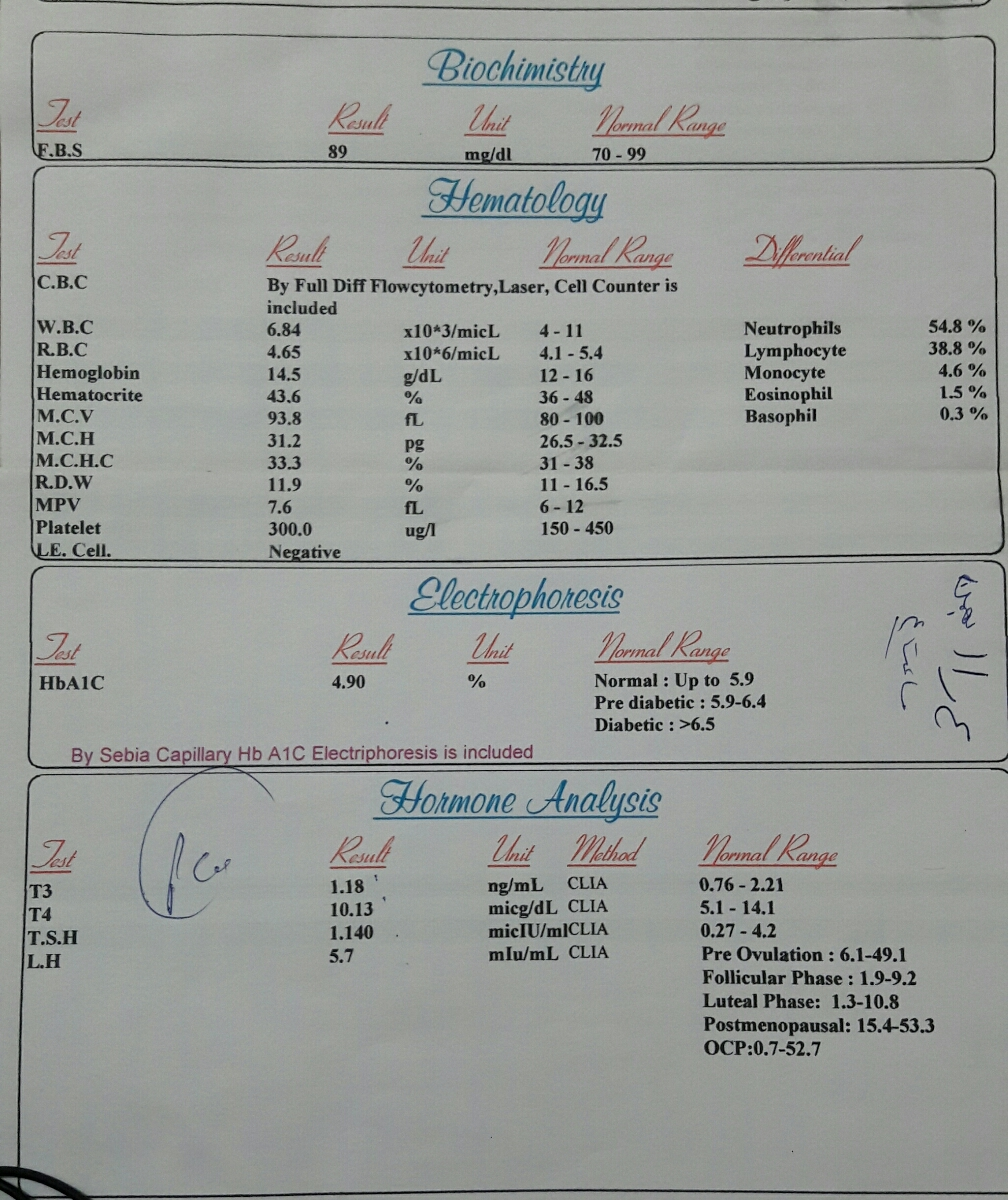 Biochimistry
Test Result Unit Normal Range
F.B.S 89 mg/dl 70 - 99
Hematology
Test Result Unit Normal Range Differential
C.B.C By Full Diff Flowcytometry,Laser, Cell Counter is
included
W.B.C 6.84 x10*3/micL 4 - 11 Neutrophils 54.8 %
R.B.C 4.65 x10*6/micL 4.1 - 5.4 Lymphocyte 38.8 %
Hemoglobin 14.5 g/dL 12 - 16 Monocyte 4.6 %
Hematocrite 43.6 % 36 - 48 Eosinophil 1.5 %
M.C.V 93.8 fL 80 - 100 Basophil 0.3 %
M.C.H 31.2 pg 26.5 - 32.5
M.C.H.C 33.3 % 31 - 38
R.D.W 11.9 % 11 - 16.5
MPV 7.6 fL 6 - 12
Platelet 300.0 ug/l 150 - 450
L.E. Cell. Negative
Electrophoresis
Test Result Unit Normal Range
HbA1C 4.90 % Normal : Up to 5.9
Pre diabetic : 5.9-6.4
Diabetic : >6.5
By Sebia Capillary Hb A1C Electriphoresis is included
Hormone Analysis
Test Result Unit Method Normal Range
T3 1.18 ng/mL CLIA 0.76 - 2.21
T4 10.13 micg/dL CLIA 5.1 - 14.1
T.S.H 1.140 micIU/mlCLIA 0.27 - 4.2
L.H 5.7 mIu/mL CLIA Pre Ovulation : 6.1-49.1
Follicular Phase : 1.9-9.2
Luteal Phase: 1.3-10.8
Postmenopausal: 15.4-53.3
OCP:0.7-52.7